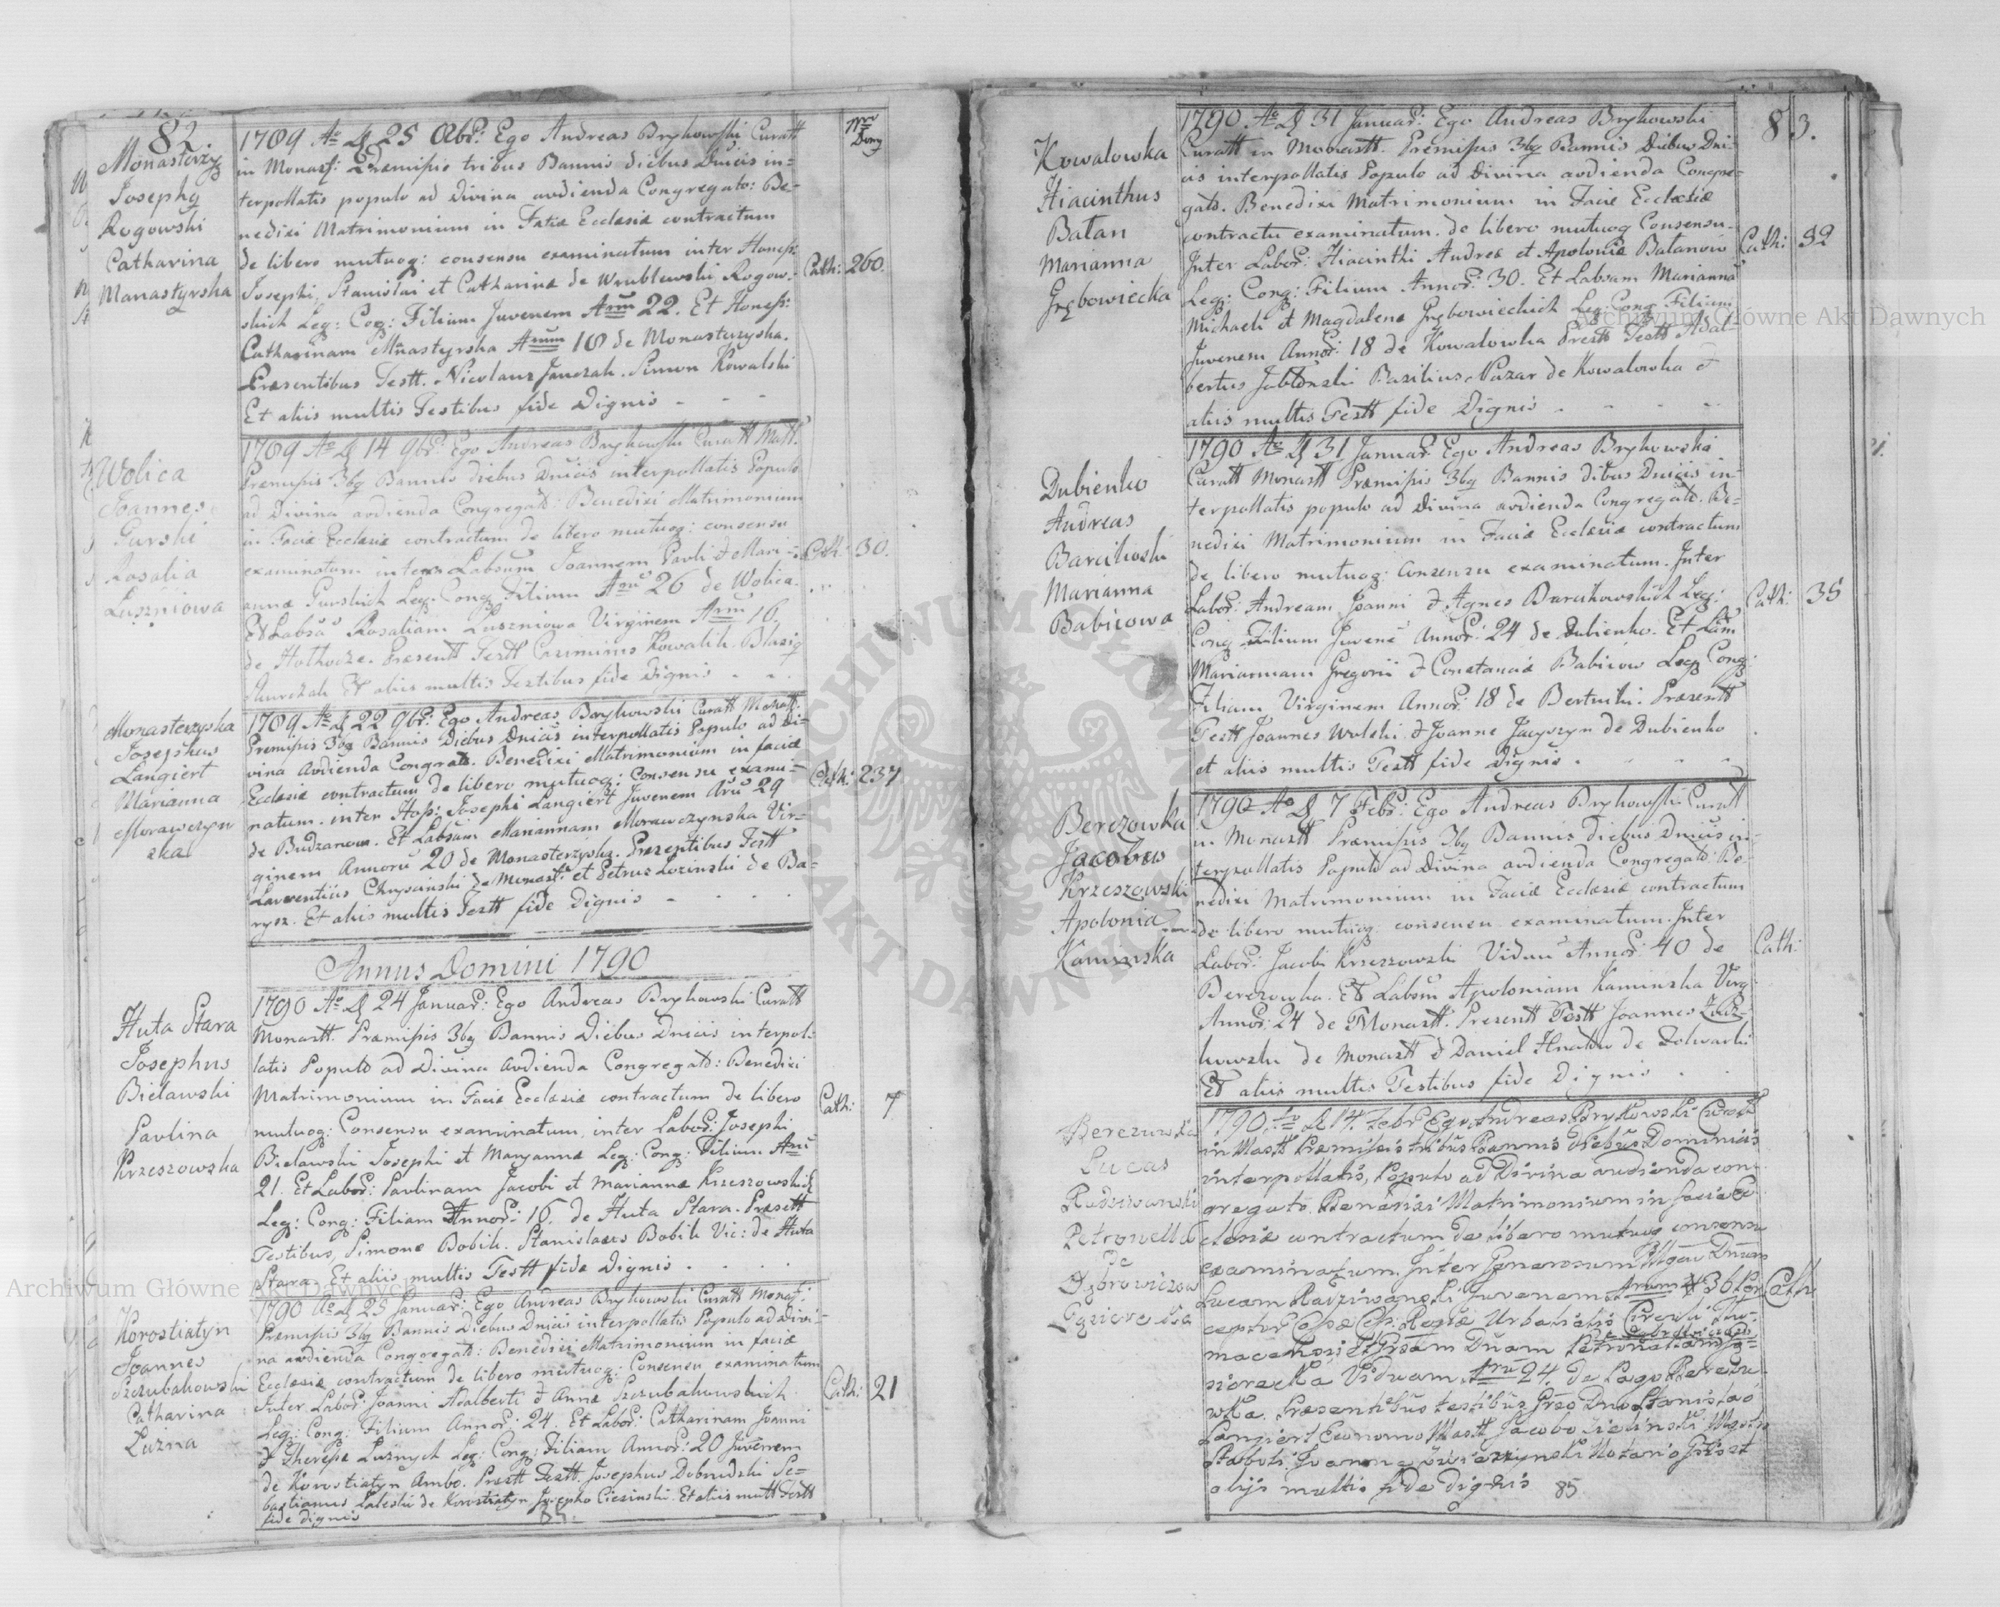 82
Monasterzy
Josephq
Rogowski
Catharina
Manastyrska
1789 Ao D 25 Obr: Ego Andreas Brykowski Curatt
in Monast: Præmißis tribus Bannis diebus Dnicis in=
terpollatis populo ad divina avdienda Congregato: Be=
nedixi Matrimonium in Faciæ Ecclesiæ contractum
de libero mutuoq: consensu examinatum inter Honest:
Josephi, Stanislai et Catharinæ de Wrublewski Rogow:
skich Leg: Cog: Filium Juvenem Arum 22. Et Honest:
Catharinam Mnastyrska Arum 18 de Monasterzyska.
Præsentibus Testt. Nicolaus Janczak. Simon Kowalski
Et aliis multis Testibus fide Dignis
Nro
Dom
Cath: 260.
Wolica
Joannes
Gurski
Rosalia
Luszniowa
1789 Ao D 14 9br: Ego Andreas Brykowski Curatt Mstt:
Premißis 3bq Bannis diebus Dnicis interpollatis Populo
ad Divina avdienda Congregato: Benedixi Matrimonium
in Faciæ Ecclesiæ contractum de libero mutuoq: consensu
examinatum inter Labsum Joannem Pavli et Mari=
annæ Gurskich Leg: Cong Filium Aru 26 de Wolica.
Et Labsā Rosaliam Luszniowa Virginem Arum 16
de Holhocze. Præsentt Testt Casimirus Kowalik. Blasiq
Et aliis multis Testibus fide Dignis
Cath: 30.
Monasterzyska
Josephus
Langiert
Marianna
Morawczyn
ska
1789 Ao D 22 9br: Ego Andreas Brykowski Curatt Monst:
Premißis 3bq Bannis Diebus Dnicis interpollatis Populo ad Di=
vina Avdienda Congrato. Benedixi Matrimonium in faciæ
Ecclesiæ contractum de libero mutuoq: Consensu exami=
natum. inter Host: Josephi Langiert Juvenem Aru 29
de Budzanow. Et Labsam Mariannam Morawczynska Vir=
ginem Annoru 20 de Monasterzyska. Præsentibus Testt
Lawrentiis Chrysinski de Monast et Petrus Lozinski de Ba=
rysz. Et aliis multis Testt fide Dignis
Cath: 237
Annus Domini 1790
Huta Stara
Josephus
Bielawski
Pavlina
Krzeszowska
1790 Ao D 24 Januar: Ego Andreas Brykowski Curatt
Monastt. Præmißis 3bq Bannis Diebus Dnicis interpol=
latis Populo ad Divina avdienda Congregato: Benedixi
Matrimonium in Faciæ Ecclesiæ contractum de libero
mutuoq: Consensu examinatum, inter Labor: Josephi
Bielawski Josephi et Maryannæ Leg: Cong: Filium Aru
21. Et Labor: Pavlinam Jacobi et Mariannæ Krzeszowskich
Leg: Cong: Filiam Annor: 16. de Huta Stara. Præsett
Testibus, Simone Bobik. Stanislaus Bobik Vic: de Huta
Stara. Et aliis multis Testt fide Dignis
Cath: 7
Korostiatyn
Joannes
Szczubakowski
Catharina
Luzna
1790 Ao D 25 Januar: Ego Andreas Brykowski Curatt Monast:
Præmißis 3bq Bannis Diebus Dnicis interpollatis Populo ad Divi=
na avdienda Congregato: Benedixi Matrimonium in faciæ
Ecclesiæ contractum de libero mutuoq: Consensu examinatum
Inter Labor: Joanni Adalberti et Anna Szczubakowskich
Leg: Cong: Filium Annor: 24. Et Labor: Catharinam Joanni
et Theresæ Luznych Leg: Cong: Filiam Annor: 20 Juvenem
de Korostiatyn Ambo. Prestt Testt. Josephus Dobrudzki Se=
bastianus Saleski de Korostiatyn Josepho Ciesinski. Et aliis multt Testt
fide dignis
Cath: 21
83.
Kowalowka
Hiacinthus
Batan
Marianna
Grębowiecka
1790 Ao D 31 Januar: Ego Andreas Brykowski
Curatt in Monastt. Premißis 3bq Bannis Diebus Dni=
cis interpollatis Populo ad Divina avdienda Congre=
gato. Benedixi Matrimonium in Faciæ Ecclesiæ
contractu examinatum. de libero mutuoq Consensu.
Inter Labor: Hiacinthi Andreæ et Apoloniæ Batanow
Leg: Cong: Filium Annor: 30. Et Labsam Marianna
Michaeli et Magdalenæ Grębowieckich Leg: Cong Filiam
Juvenem Annor: 18 de Kowalowka Prestt Testt Adal=
bertus Jablonski Basilius Puzar de Kowalowka et
aliis multis Testt fide Dignis
Cath: 32
Dubienko
Andreas
Barcikoski
Marianna
Babicowa
1790 Ao D 31 Januar Ego Andreas Brykowski
Curatt Monastt Præmißis 3bq Bannis dibus Dnicis in=
terpollatis populo ad Divina avdienda Congregato. Be=
nedixi Matrimonium in Faciæ Ecclesiæ contractum
de libero mutuoq: Consensu examinatum. Inter
Labor: Andream Joanni et Agnes Barcikowskich Leg:
Cong Filium Juvene Annor: 24 de Dubienko. Et Lām
Mariannam Gregorii et Constanciæ Babicow Leg Cong:
Filiam Virginem Annor: 18 de Bertniki. Præsentt
Testt Joannes Wolski et Joanne Jacyszyn de Dubienko
et aliis multis Testt fide Dignis
Cath: 35
Berezowka
Jacobus
Krzeszowski
Apolonia
Kaminska
1790 Ao D 7 Febr: Ego Andreas Brykowski Curatt
in Monastt Præmißis 3bq Bannis Diebus Dnicis in=
terpollatis Populo ad Divina avdienda Congregato: Be=
nedixi Matrimonium in Faciæ Ecclesiæ contractum
de libero mutuoq consensu examinatum. Inter
Labor: Jacobi Krzeszowski Viduu Annor: 40 de
Berezowka. Et Labsm Apoloniam Kaminska Virg:
Annor: 24 de Monastt. Presentt Testt Joannes
kowski de Monastt et Daniel Hnatow de Folwarki
Et aliis multis Testibus fide Dignis
Cath:
Berezuwka
Lucas
Radziwanski
Petronella
de
Dąbrowiczow
Gąsierecka
1790. Ao D 14. Febr Ego Andreas Brykowski Curatt
in Mastt Præmißis tribus Bannis Diebus Dominicis
interpollatis, Populo ad Divina avdienda con
gregato. Benedixi Matrimonium in facie Ec
clesiæ contractum de libero mutuoq consensu
examinatum. Inter Generosum Mgān Dnum
Lucam Radziwanski Juvenem Arum 36
Viduam Aru 24. de Lago Berezu
wka. Præsentibus testibus Grso Dno Stanislao
Langiert Economo Mastt Jacobo
Joanne Notario
alijs multis fide dignis
Cath
85
Archiwum Główne Akt Dawnych
Archiwum Główne Akt Dawnych
ARCHIWUM GŁÓWNE AKT DAWNYCH